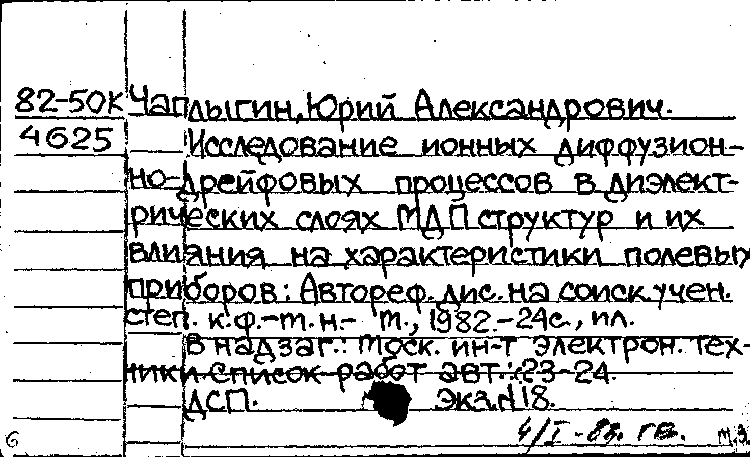 82-50к Чаплыгин, Юрий Александрович.
4625 Исследование ионных диффузион-
но-дрейфовых процессов в диэлект-
рических слоях МДП структур и их
влияния на характеристики полевых
приборов: Автореф. дис. на соиск. учен.
степ. к.ф.-т.н.- т., 1982.-24с., ил.
В надзаг.: Моск. ин-т электрон. тех-
ники Список работ авт.: с23-24.
ДСП. Экз. №18.
4/I-83.